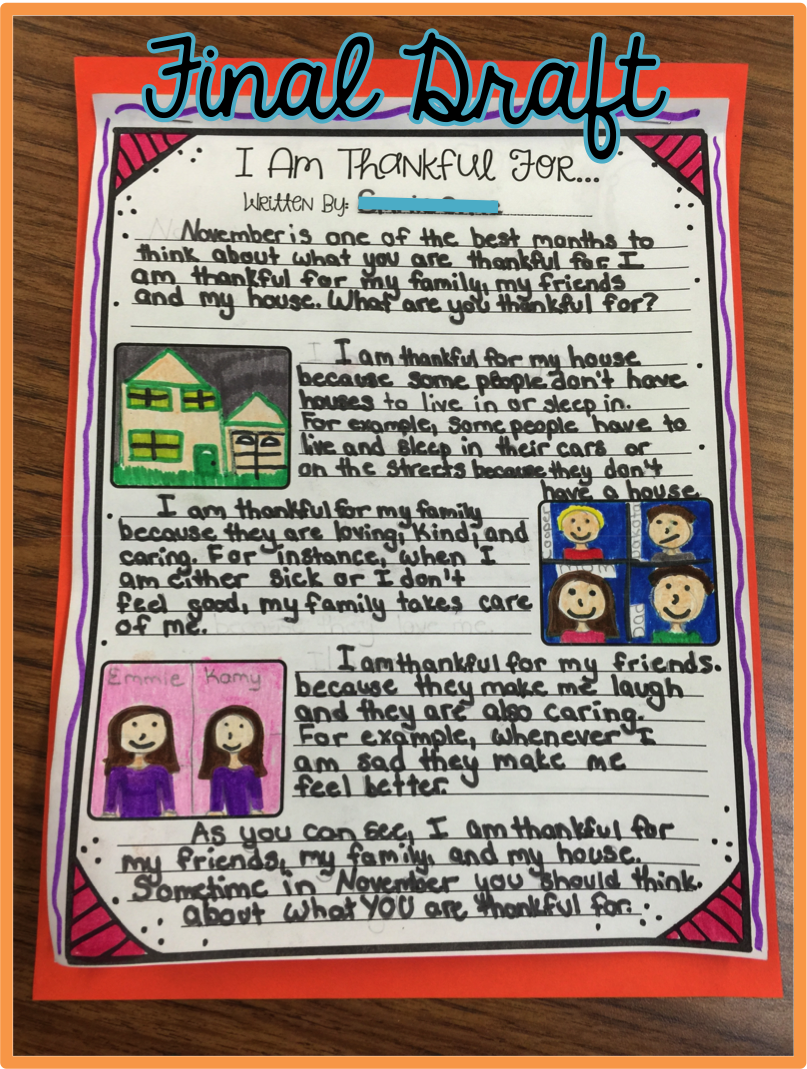 Final Draft
I Am Thankful For...
Written By:
November is one of the best months to
think about what you are thankful for. I
am thankful for my family, my friends
and my house. What are you thankful for?
I am thankful for my house
because some people don't have
houses to live in or sleep in.
For example, some people have to
live and sleep in their cars or
on the streets because they don't
have a house
I am thankful for my family
because they are loving, kind, and
caring. For instance, when I
am either sick or I don't
feel good, my family takes care
of me.
Cooper
Dakota
Mom
Dad
Emmie Kamy
I am thankful for my friends.
because they make me laugh
and they are also caring.
For example, whenever I
am sad they make me
feel better.
As you can see, I am thankful for
my friends, my family, and my house.
Sometime in November you should think.
about what YOU are thankful for.